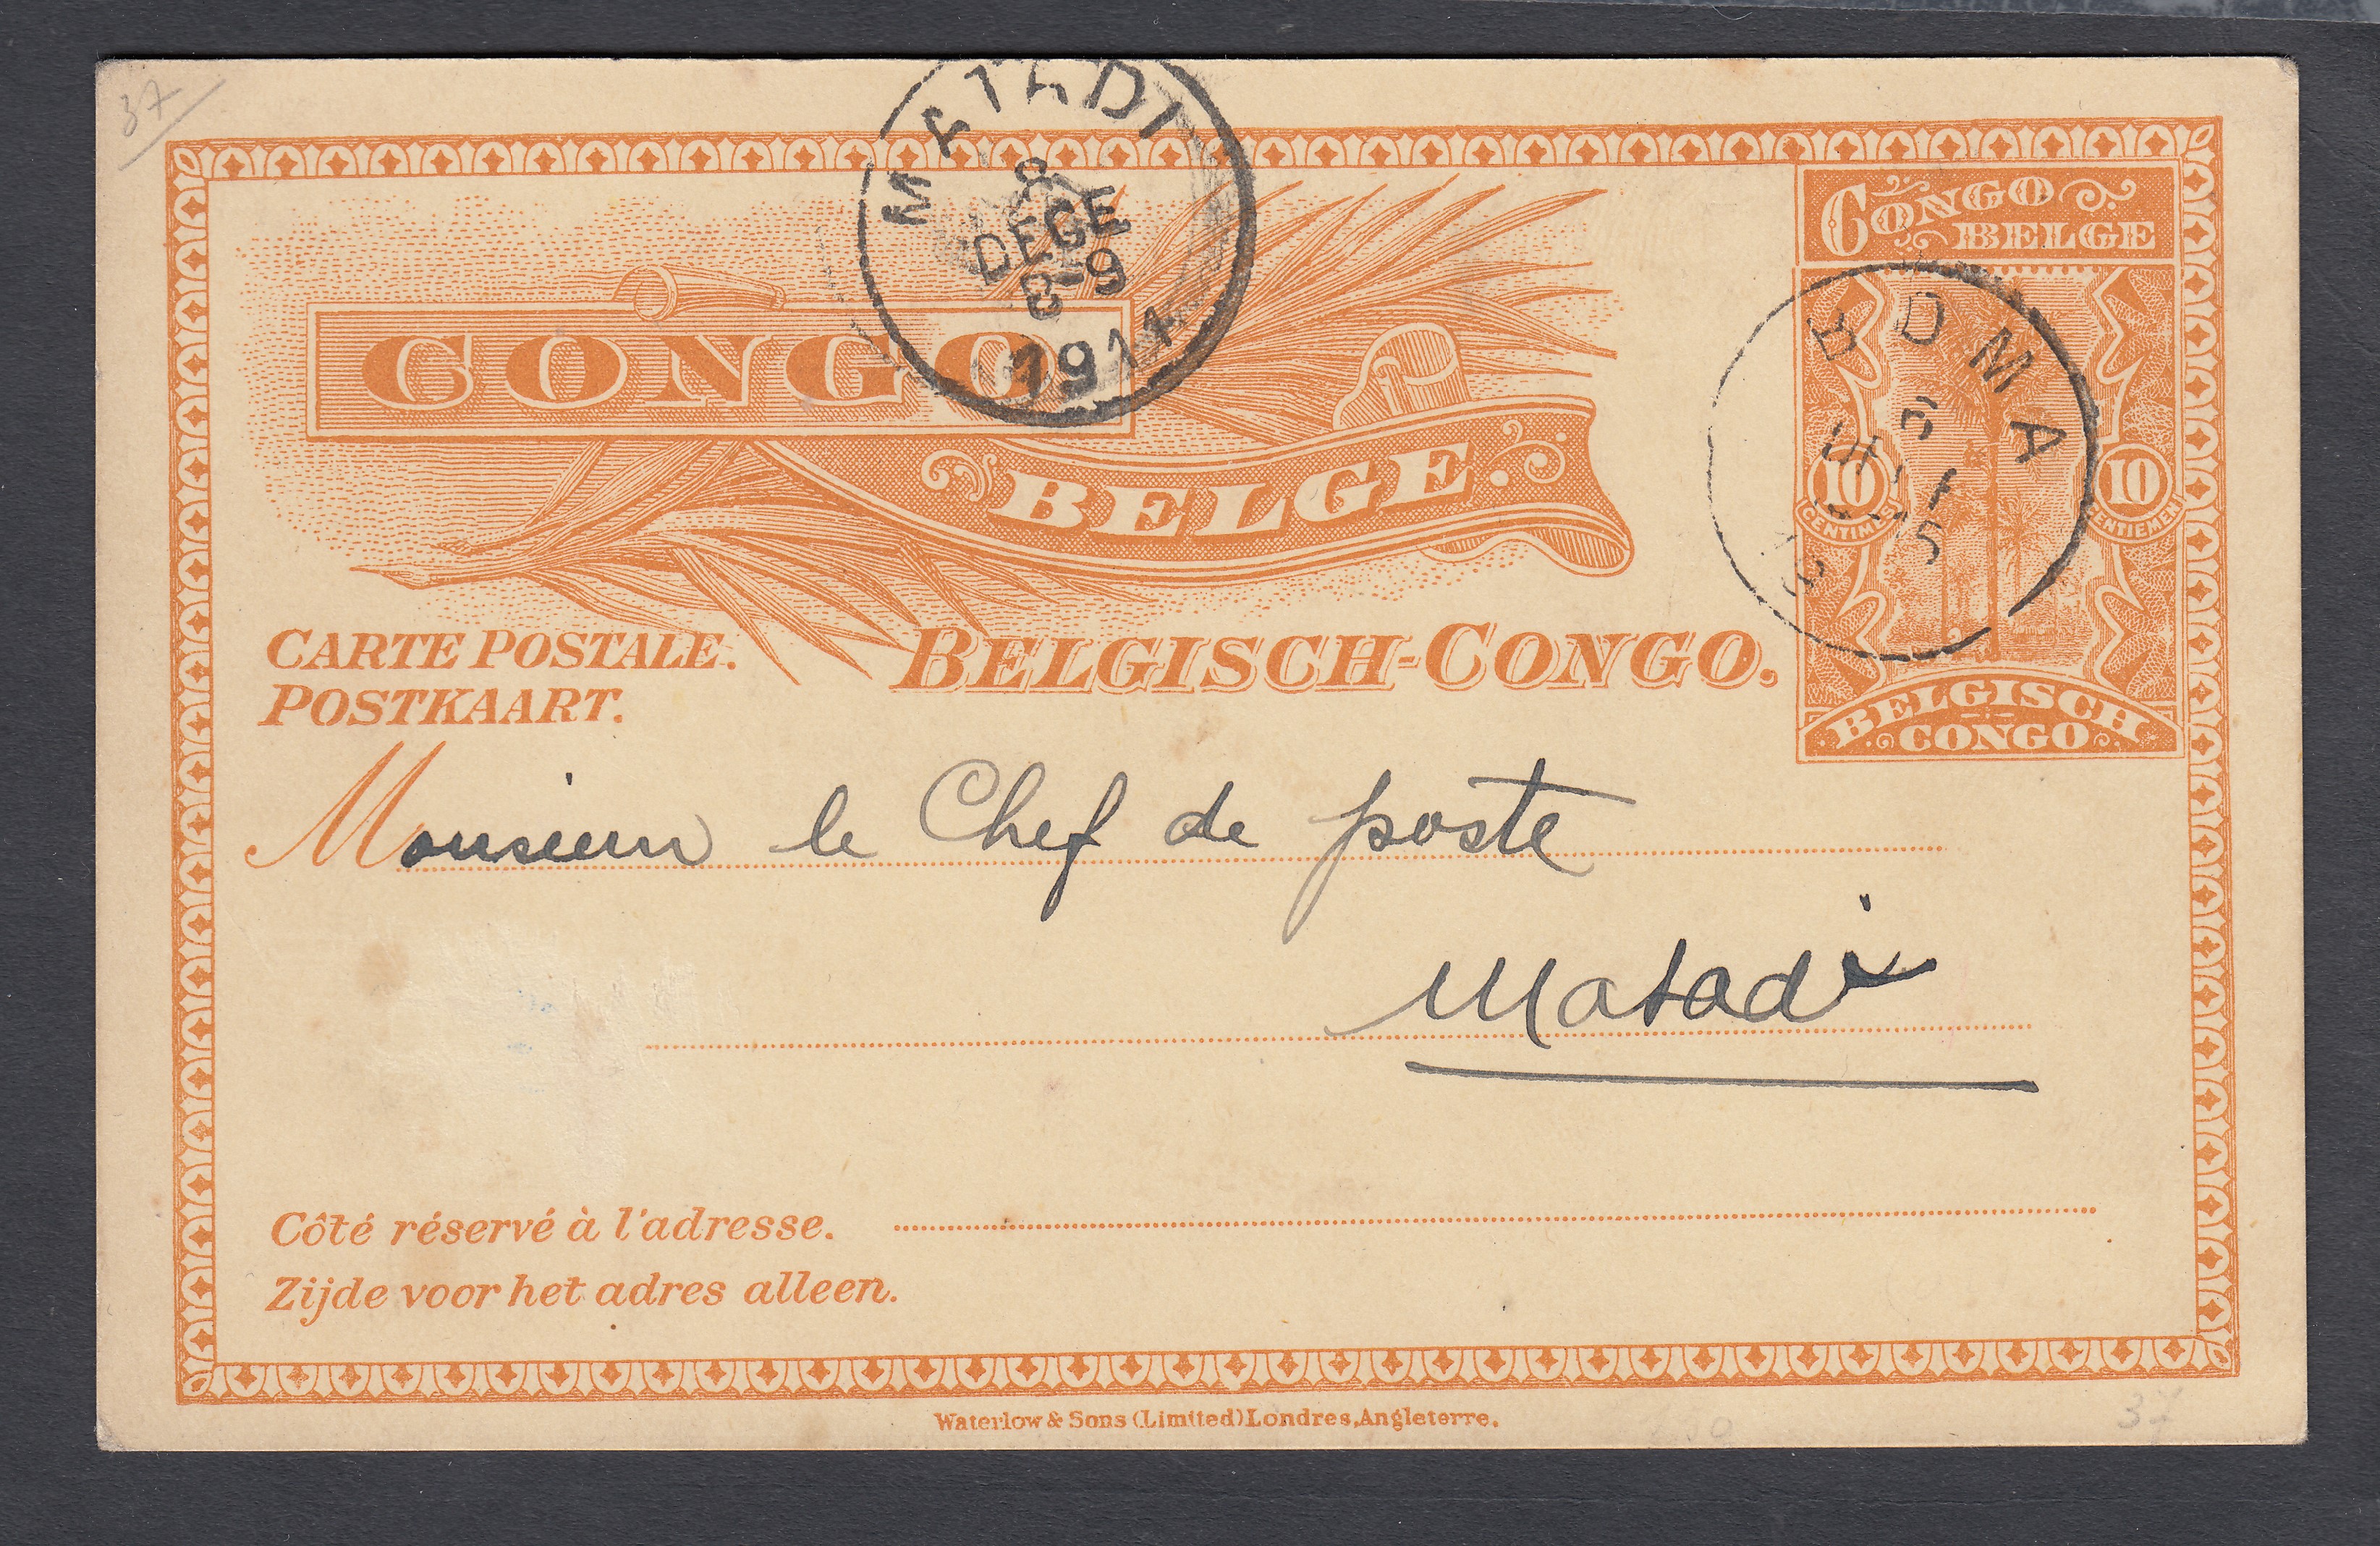 37
MATADI
8
DECE
8-9
1911
CONGO
BELGE.
CONGO
BELGE
BOMA
6
10
CENTIMES
10
CENTIEMEN
BELGISCH
CONGO
CARTE POSTALE.
POSTKAART.
BELGISCH-CONGO.
Monsieur le Chef de poste
Matadi
Côté réservé à l'adresse.
Zijde voor het adres alleen.
Waterlow & Sons (Limited) Londres, Angleterre.
37